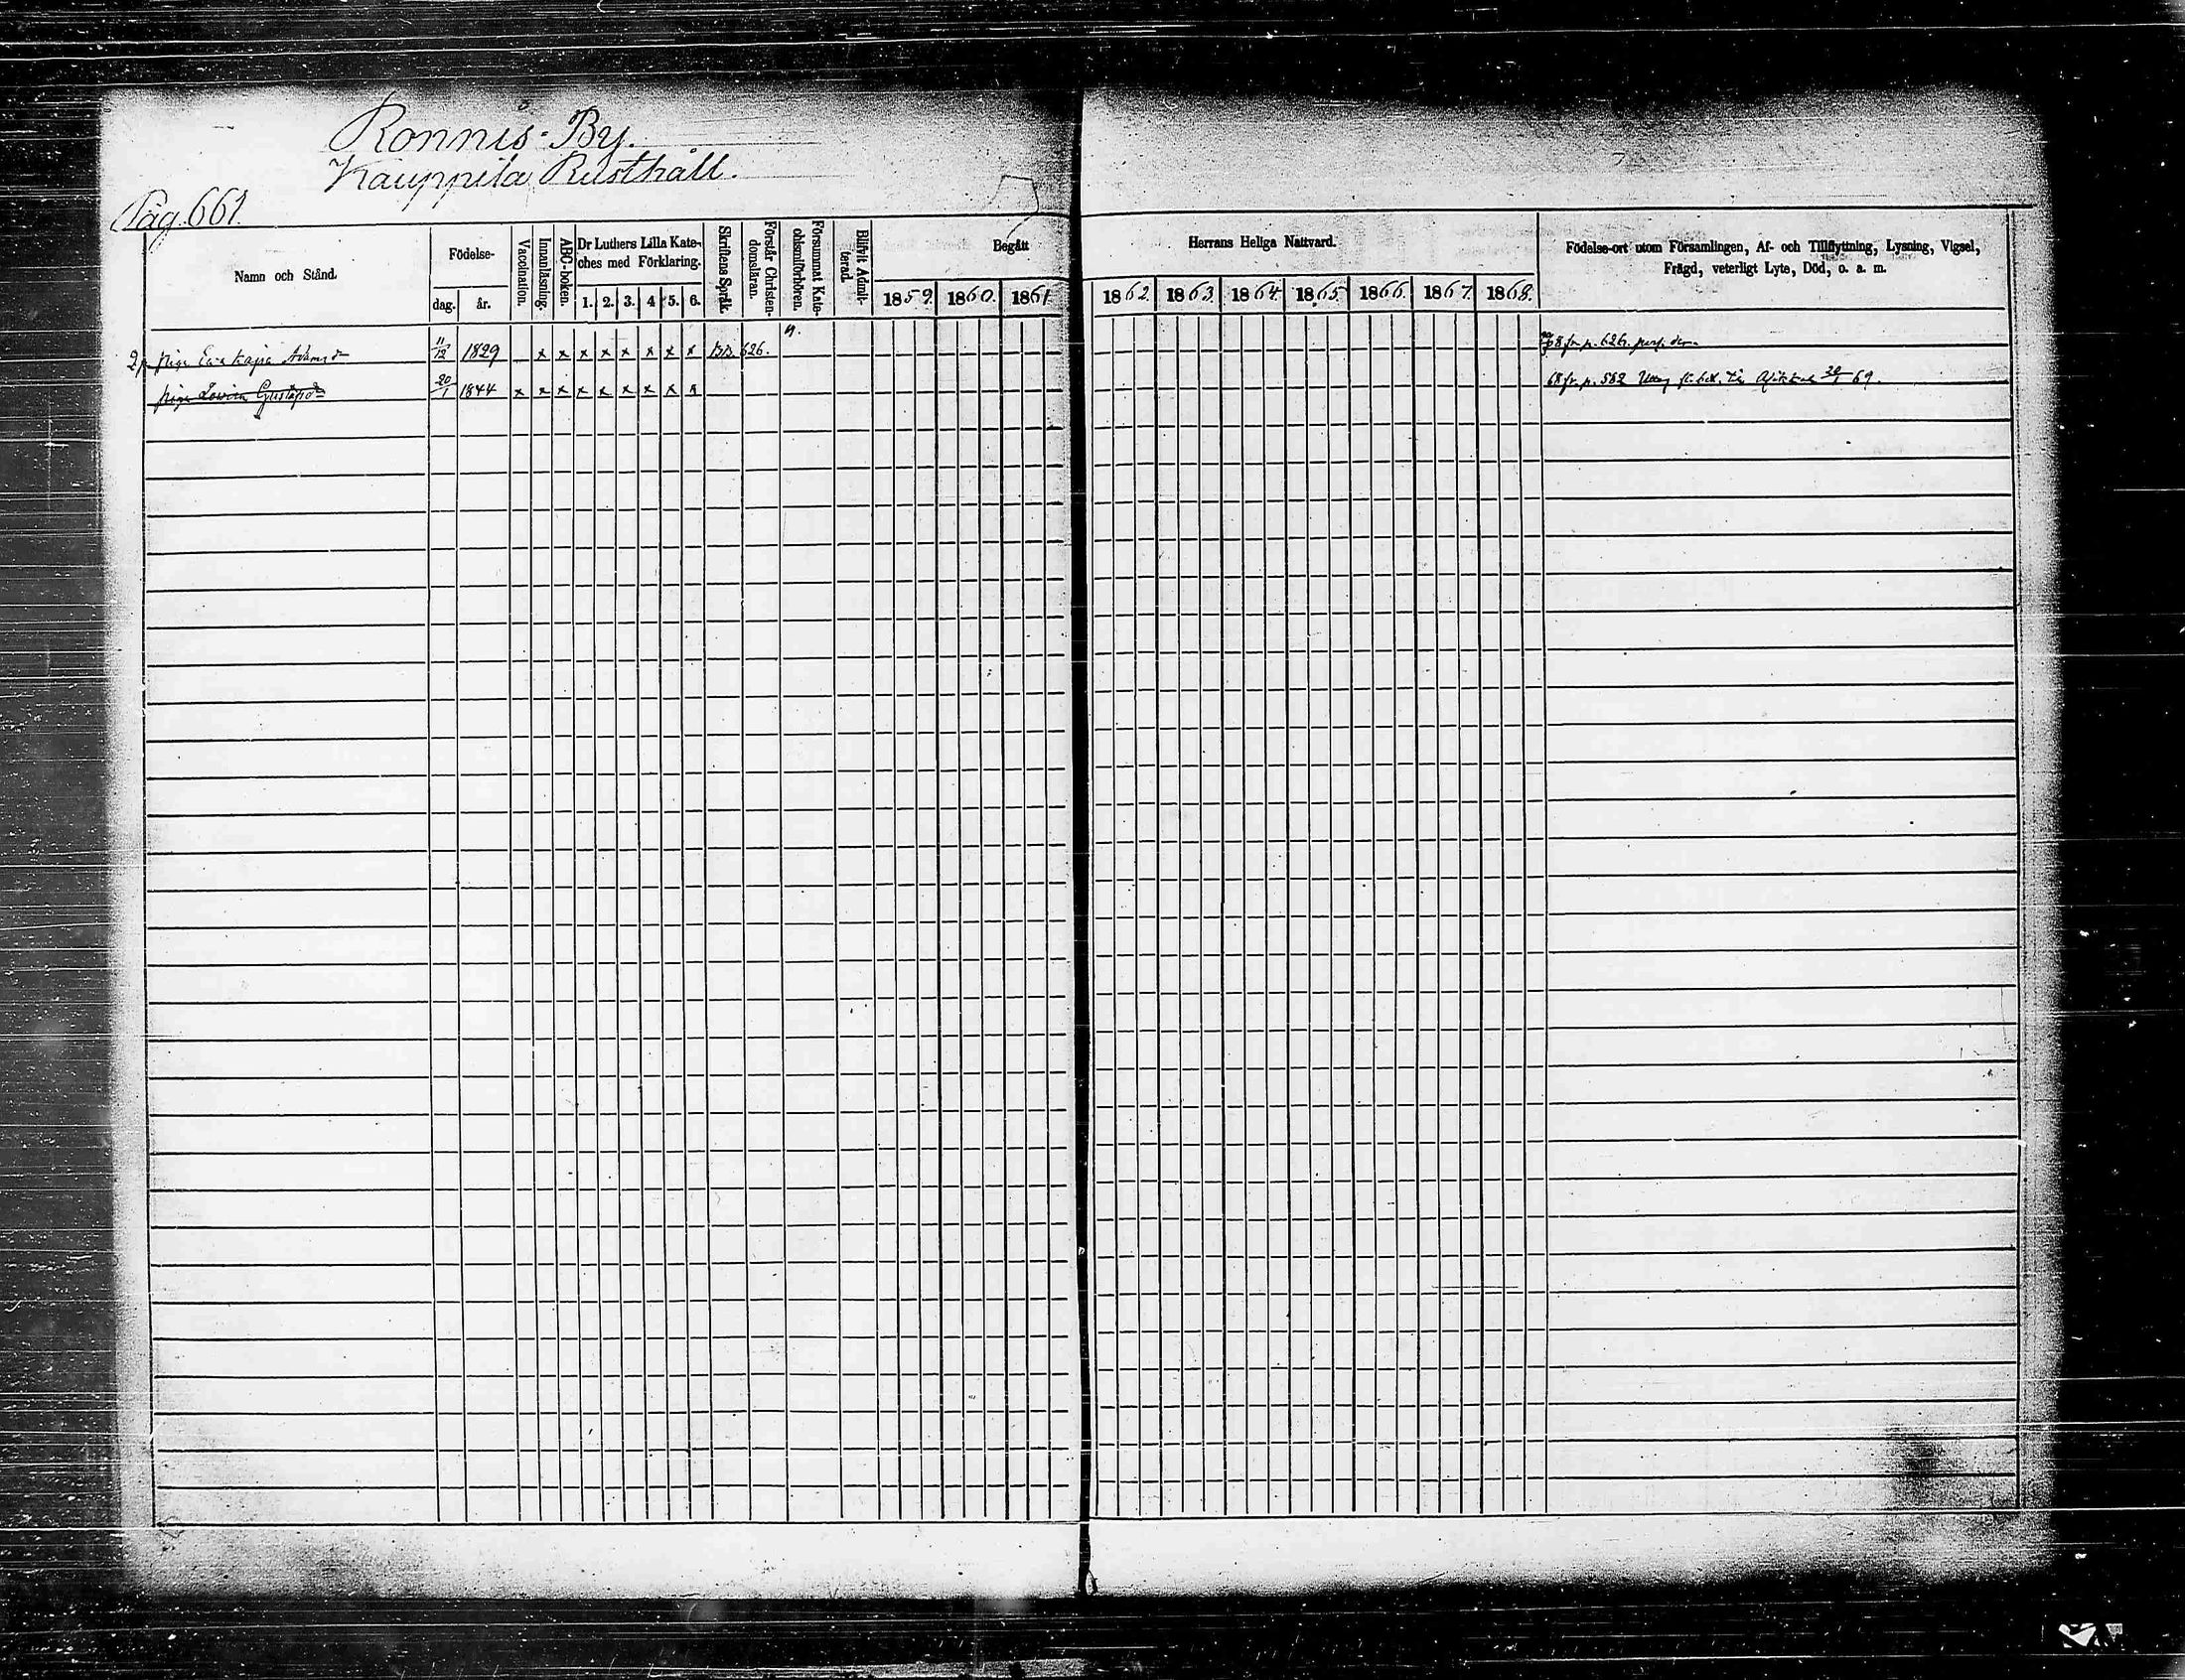 Ronnis-By.
Kauppila Rusthåll.
Pag. 661.
Namn och Stånd.
Födelse-
dag.
år.
Vaccination.
Innanläsning.
ABC-boken.
Dr Luthers Lilla Kate-
ches med Förklaring.
1. 2. 3. 4 5. 6.
Skriftens Språk.
Förstår Christen-
domsläran.
Försummat Kate-
chismiförhören.
Blifvit Admit-
terad.
Begått
Herrans Heliga Nattvard.
1859. 1860. 1861. 1862. 1863. 1864. 1865. 1866. 1867. 1868.
Födelse-ort utom Församlingen, Af- och Tillflyttning, Lysning, Vigsel,
Frägd, veterligt Lyte, Död, o. a. m.
pige Eva Kajsa Adamsdr 11/12 1829 x x x x x x x x BB. 626. 68 fr p. 626.
pige Lovisa Gustafsdr 20/1 1844 x x x x x x x x x 68 fr. p. 582 69.